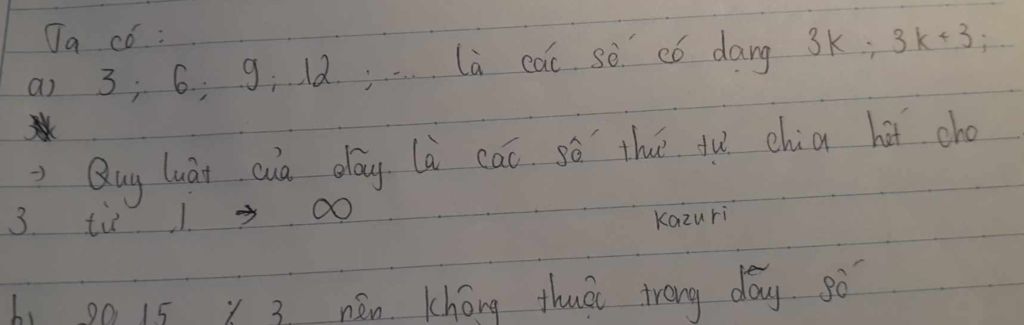 Ta có:
a) 3; 6; 9; 12; ... là các số có dạng 3k; 3k+3;
→ Quy luật của dãy là các số thứ tự chia hết cho
3 từ 1 → ∞
Kazuri
b) 2015 % 3 nên không thuộc trong dãy số